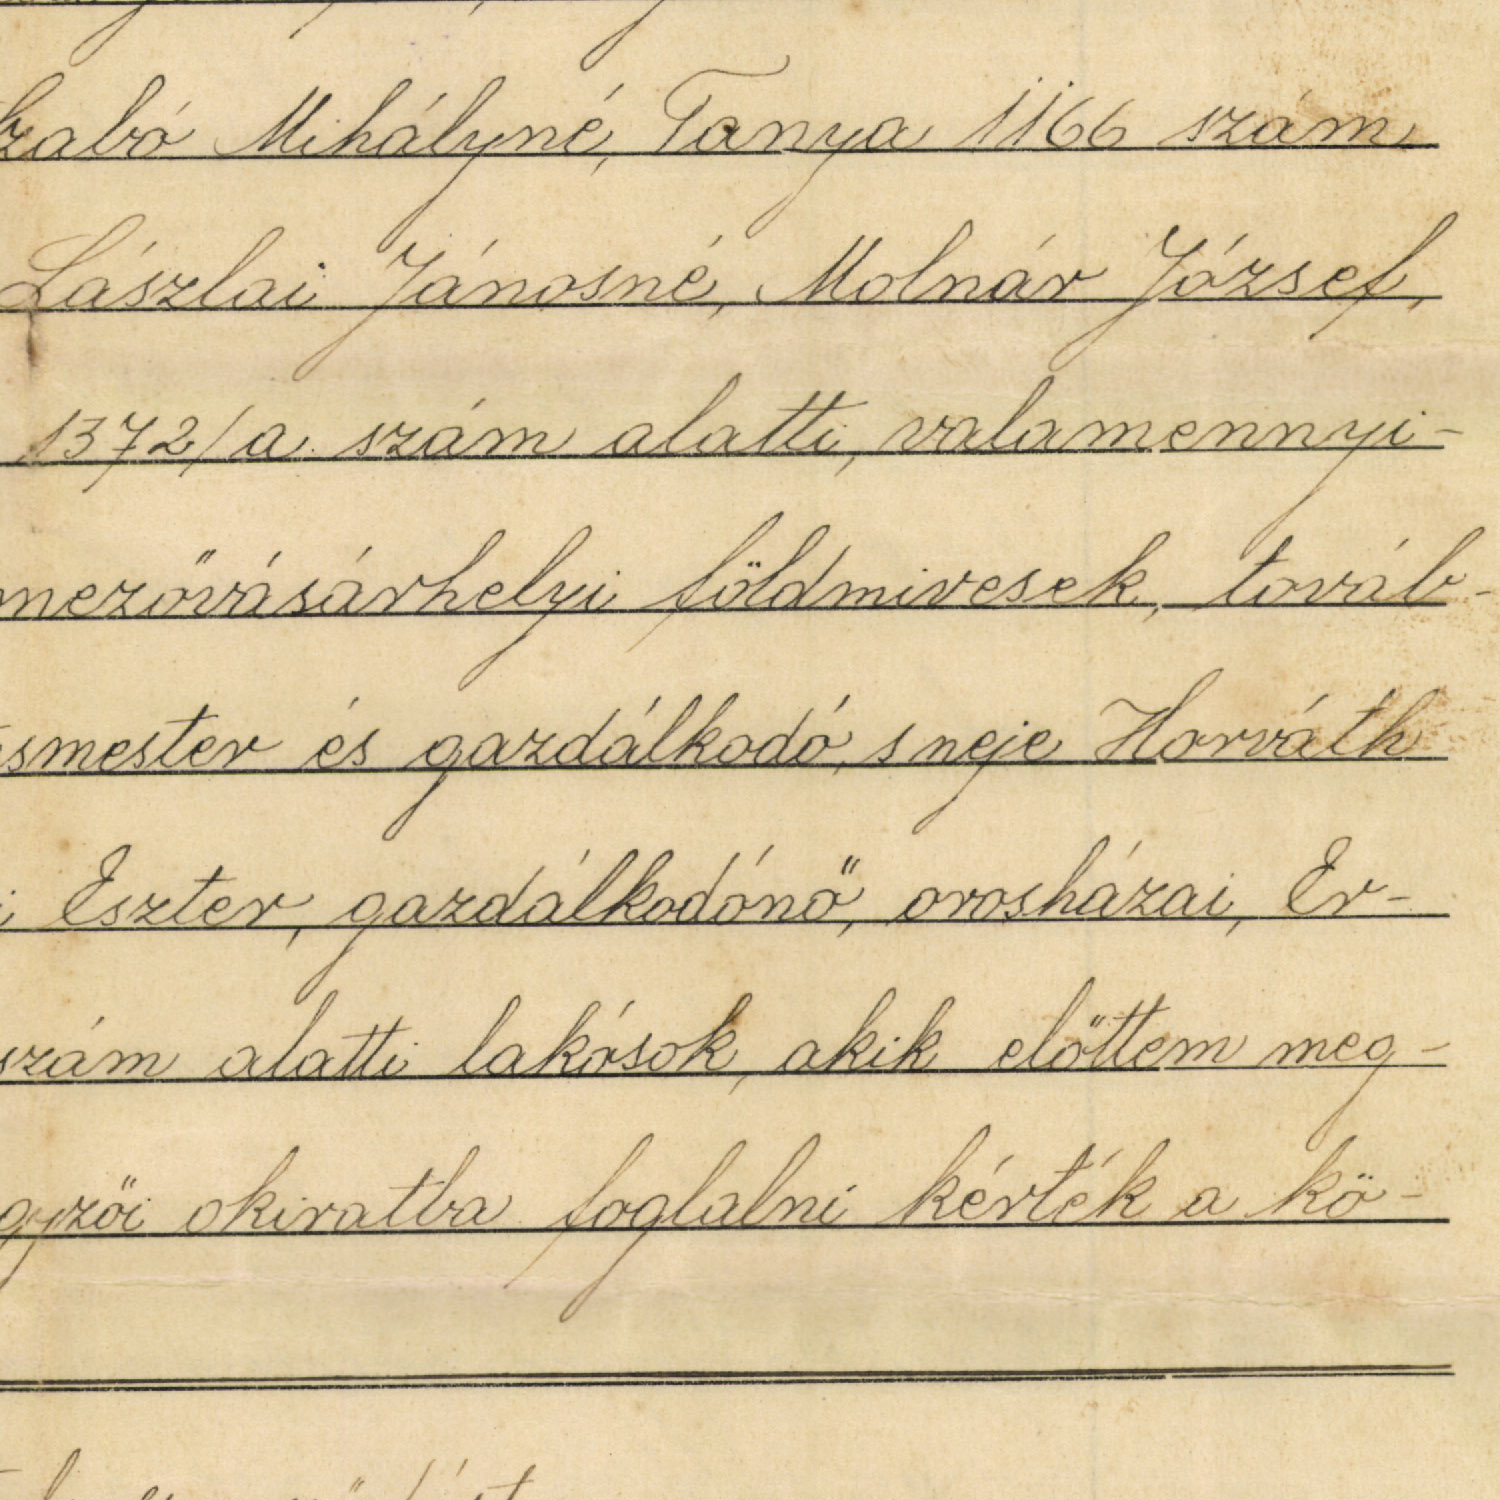 Szabó Mihályné, Tanya 1166 szám
Lászlai Jánosné, Molnár József,
1372/a. szám alatti, valamennyi-
mezővásárhelyi földmivesek, továb-
smester és gazdálkodó, s neje Horváth
i Eszter, gazdálkodónő, orosházai, Er-
szám alatti lakósok, akik előttem meg-
gyzői okiratba foglalni kérték a kö-